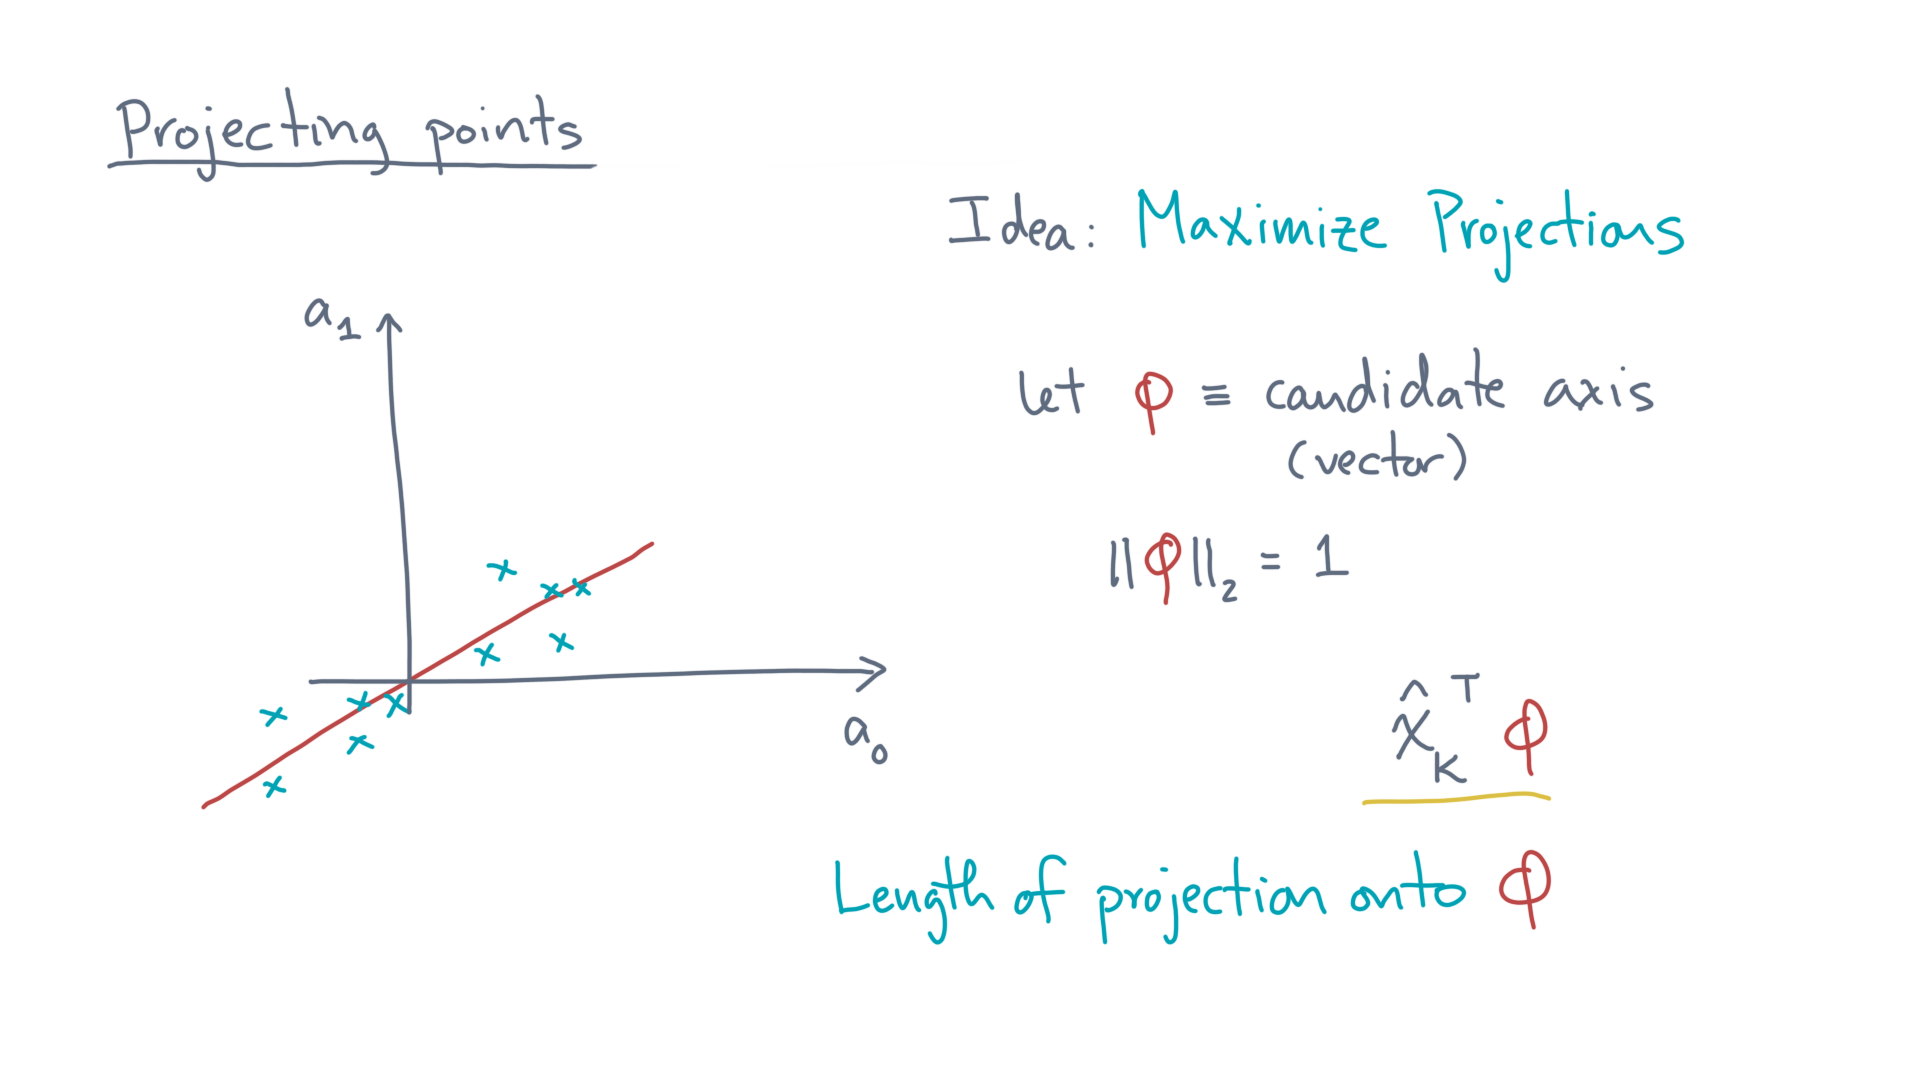 Projecting points
Idea: Maximize Projections
a₁
Let φ ≡ candidate axis
(vector)
||φ||₂ = 1
a₀
x̂ₖᵀ φ
Length of projection onto φ